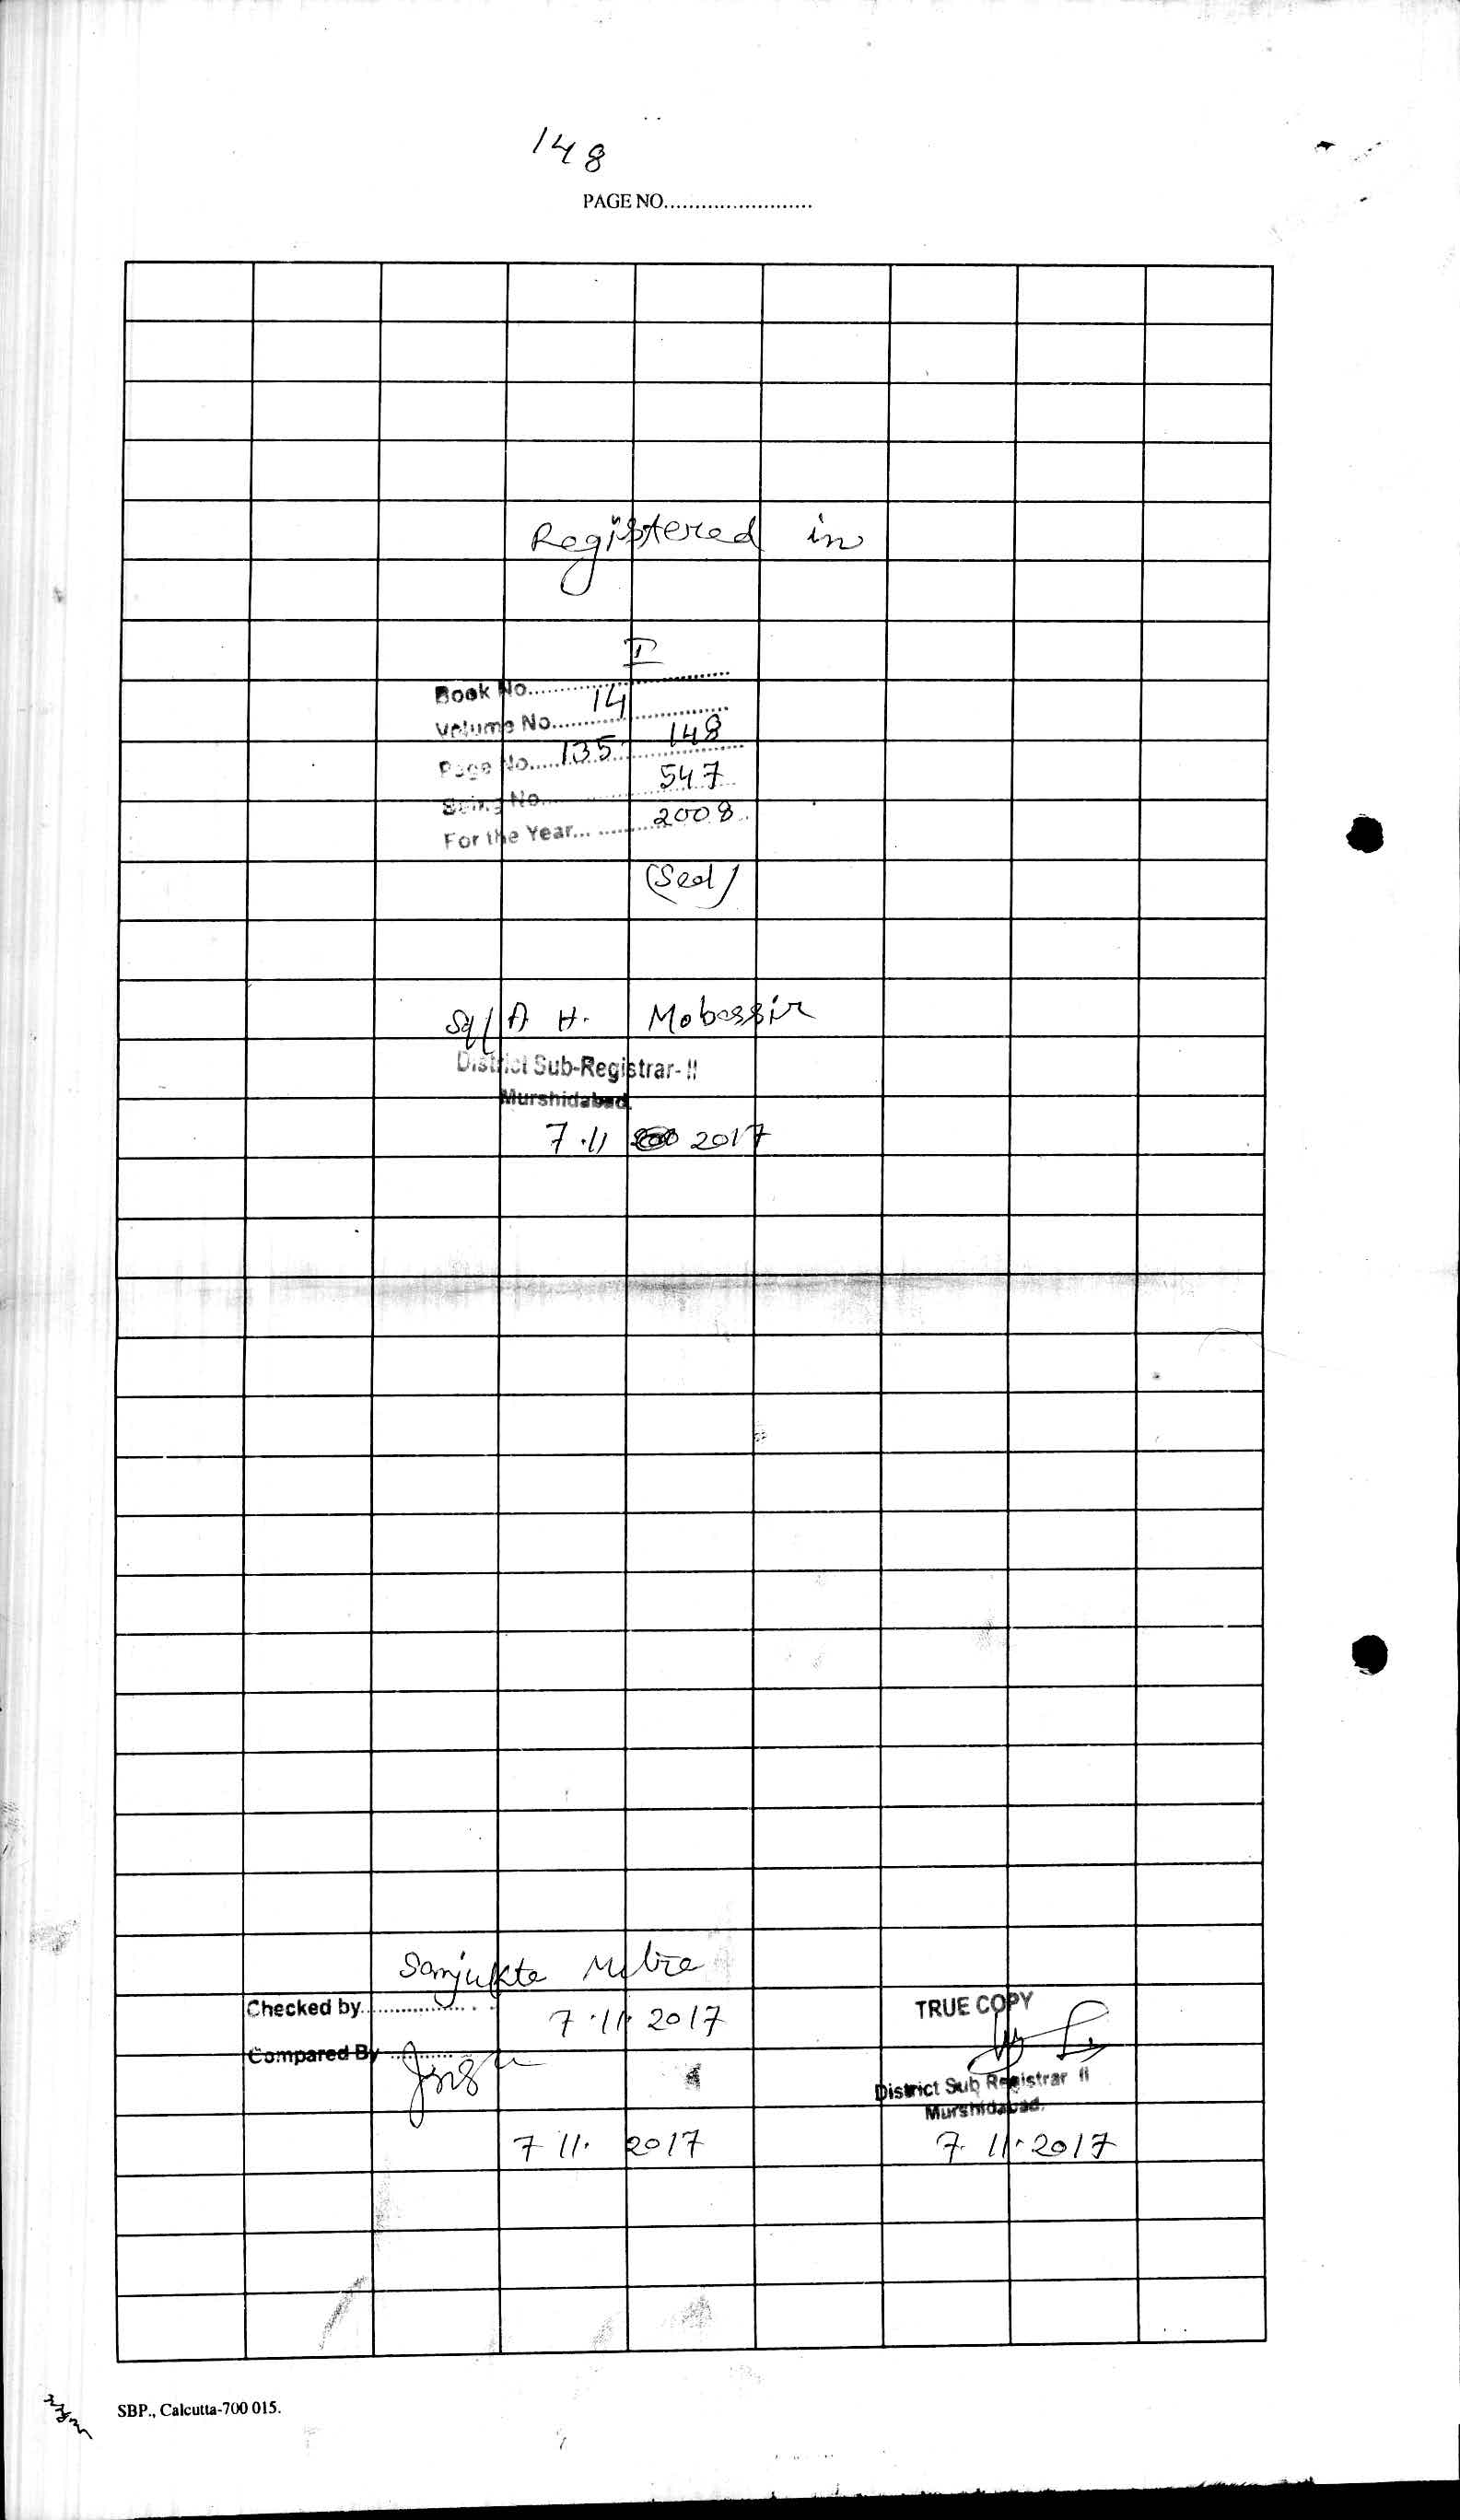 148
PAGE NO........................
Registered in
I
Book No................................
14
Volume No................................
135 148
Page No................................
547
Being No................................
2008
For the Year................................
(Seal)
Sd/ A H. Mobassir
District Sub-Registrar- II
Murshidabad.
7.11 2017
Sanjukta Mitra
Checked by....................
7.11.2017
Compared By ............
7 11. 2017
TRUE COPY
District Sub Registrar II
Murshidabad.
7. 11. 2017
SBP., Calcutta-700 015.